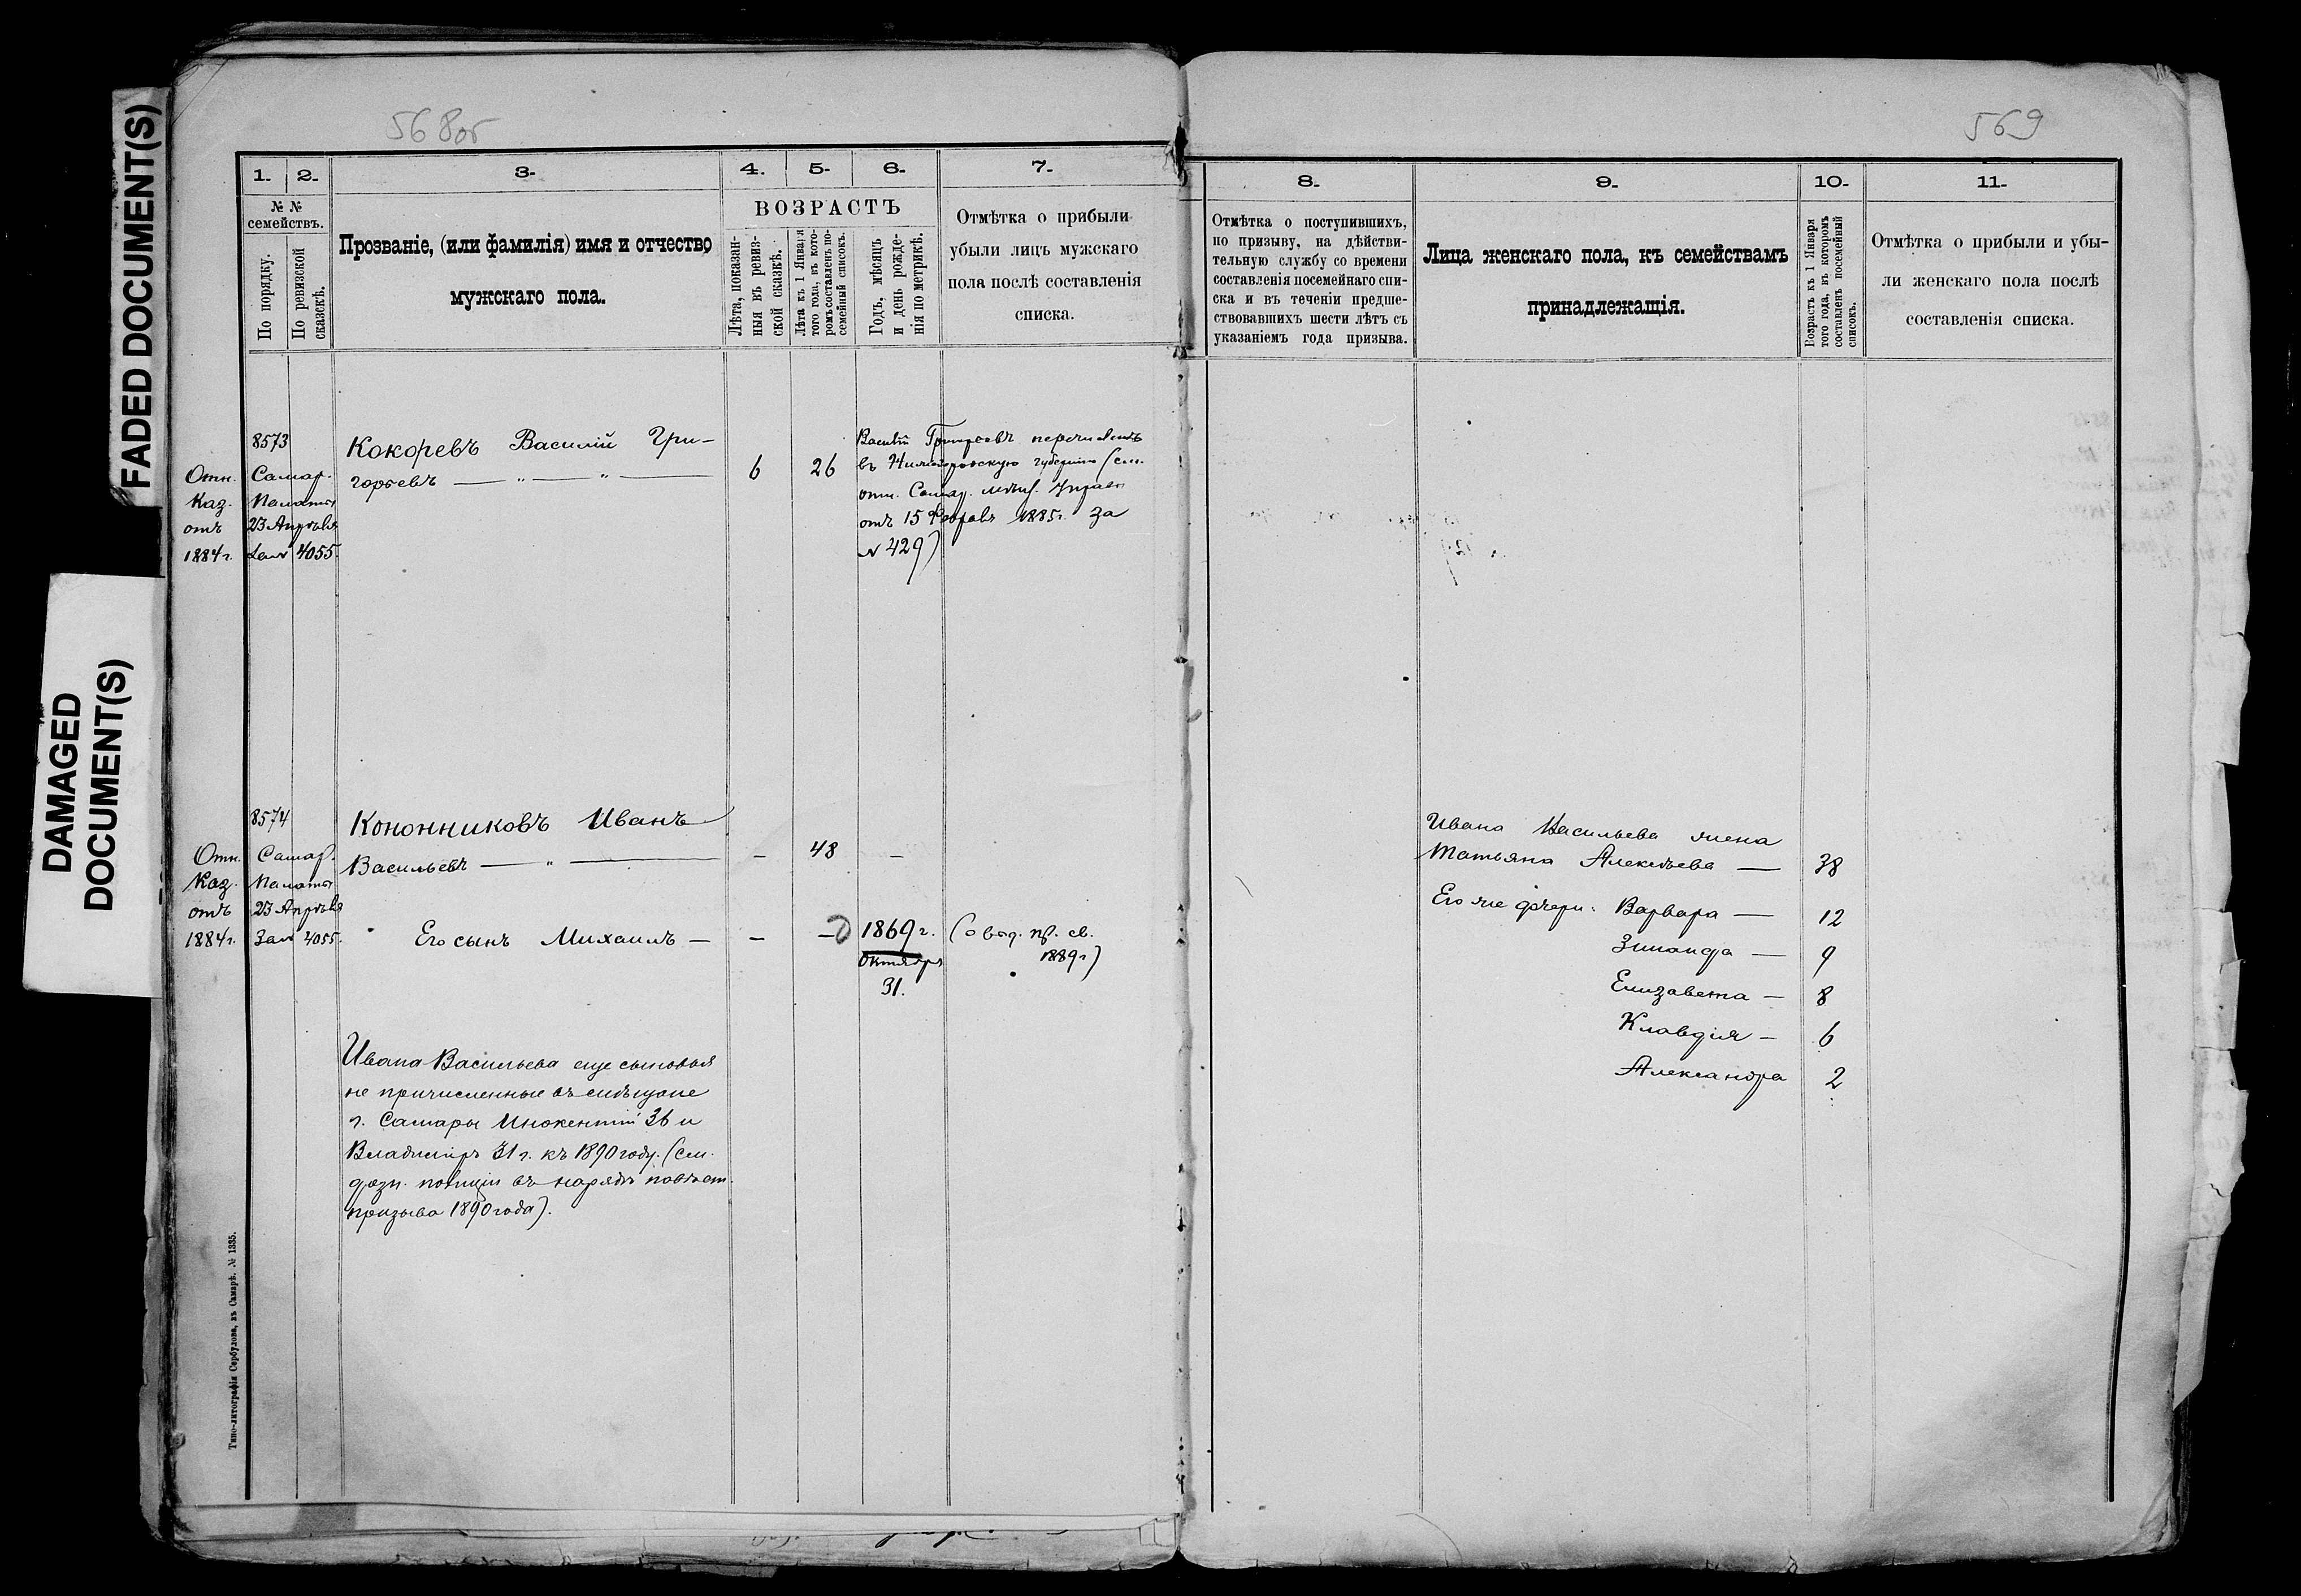 FADED DOCUMENT(S)
DAMAGED
DOCUMENT(S)
568об
1. 2. 3. 4. 5. 6. 7.
№ №
семействъ.
По порядку.
По ревизской
сказкѣ.
Прозваніе, (или фамилія) имя и отчество
мужскаго пола.
ВОЗРАСТЪ
Лѣта, показан-
ныя въ ревиз-
ской сказкѣ.
Лѣта къ 1 Января
того года, въ кото-
ромъ составленъ по-
семейный списокъ.
Годъ, мѣсяцъ
и день рожде-
нія по метрикѣ.
Отмѣтка о прибыли
убыли лицъ мужскаго
пола послѣ составленія
списка.
8573
Отн. Самар.
Каз. Палаты
отъ 23 Апрѣля
1884 г. за № 4055.
Кокоревъ Василій Гри-
горьевъ — „ — „ — 6 26
Василій Григорьевъ перечисленъ
въ губернію (см.
отн. Самар. мѣщ. Управ.
отъ 15 Февраля 1885 г. за
№ 429)
8574
Отн. Самар.
Каз. Палаты
отъ 23 Апрѣля
1884 г. За № 4055.
Кононниковъ Иванъ
Васильевъ — „ — – 48 –
Его сынъ Михаилъ — – – 1869 г.
Октября
31.
(о вод. пр. св.
1889 г)
Ивана Васильева еще сыновья
не причисленные въ мѣщане
г. Самары Инокентій 36 и
Владиміръ 31 г. къ 1890 году. (см.
дозн. полиціи въ нарядѣ повѣст.
призыва 1890 года).
Типо-литографія Сербулова, въ Самарѣ. № 1335.
569
8. 9. 10. 11.
Отмѣтка о поступившихъ,
по призыву, на дѣйстви-
тельную службу со времени
составленія посемейнаго спи-
ска и въ теченіи предше-
ствовавшихъ шести лѣтъ съ
указаніемъ года призыва.
Лица женскаго пола, къ семействамъ
принадлежащія.
Возрастъ къ 1 Января
того года, въ которомъ
составленъ посемейный
списокъ.
Отмѣтка о прибыли и убы-
ли женскаго пола послѣ
составленія списка.
Ивана Васильева жена
Татьяна Алексѣева — 38
Его же дочери: Варвара — 12
Зинаида — 9
Елизавета — 8
Клавдія — 6
Александра 2